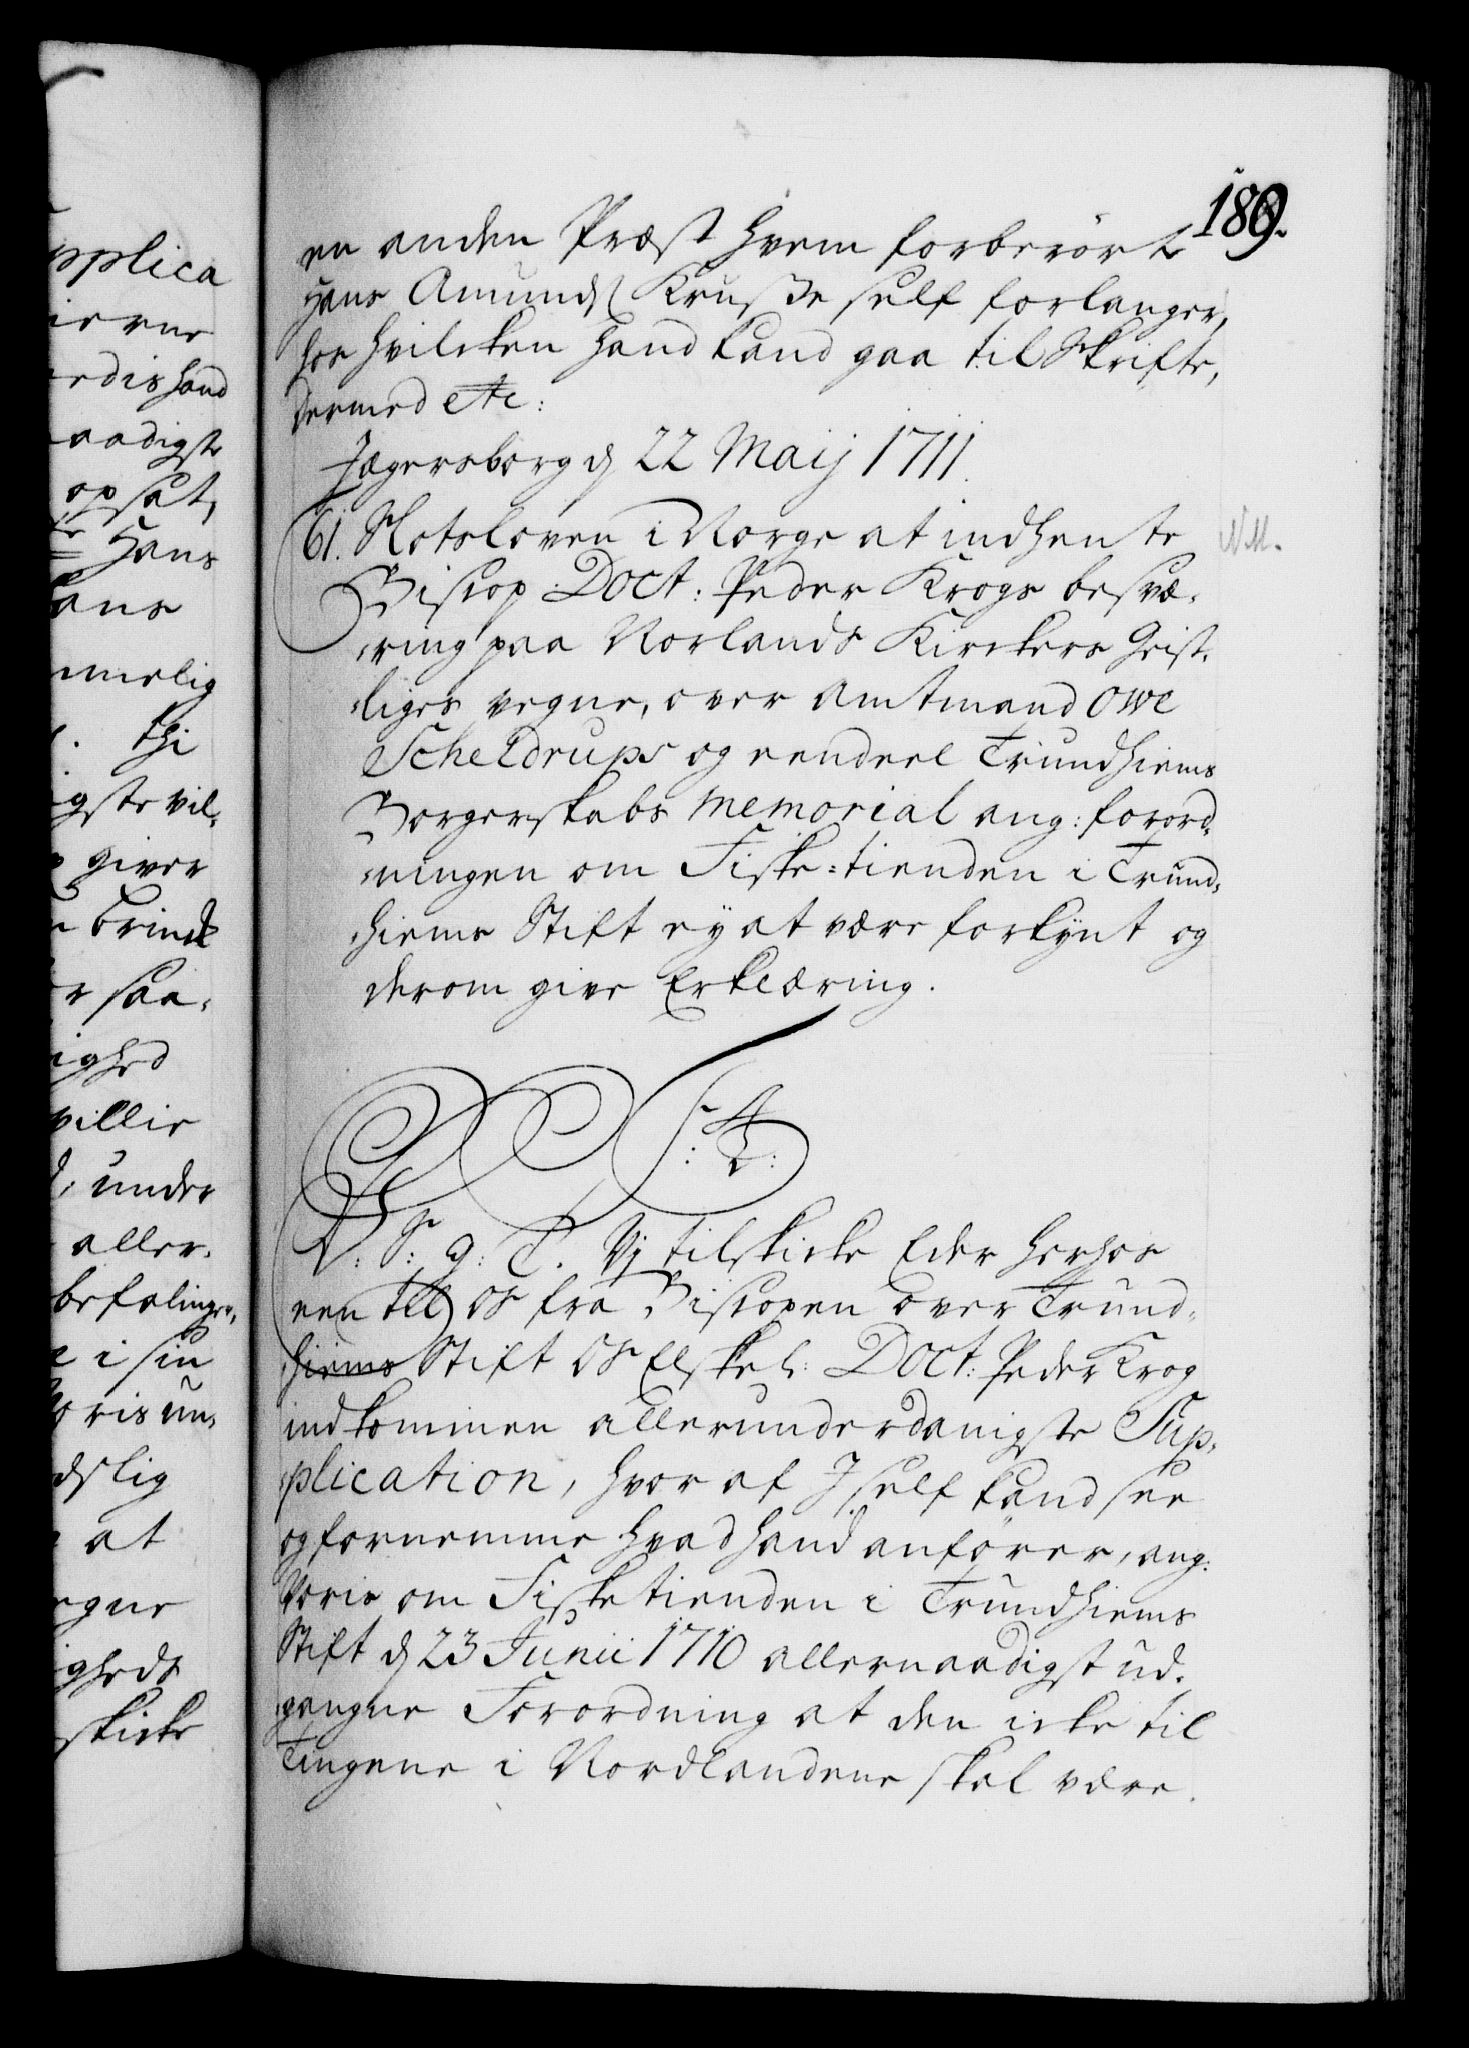 189.
en anden Præst hvem forberörte
Hans Amunds Krusse self forlanger,
hos hvilcken hand kand gaa til Skrifte,
dermed etc:
Jægersborg d 22 Maij 1711.
61. Slotsloven i Norge at indhente
Biscop Doct: Peder Krogs besvæ-
-ring paa Norlands Kirckers Geist-
-liges vegne, over Amtmand Owe
Scheldrups og eendeel Trundhiems
Borgerskabs Memorial ang: forord-
-ningen om Fiske-tienden i Trund-
-hiems Stift ey at være forkÿnt og
derom give Erklæring.
V: S: g: T. Vj tilskicke Eder herhos
een til os fra Biscopen over Trund-
-hiems Stift Os Elskel: Doct: Peder Krog
indkommen allerunderdanigste Sup-
-plication, hvor af J self kand see
og fornemme hvad hand anförer, ang:
Voris om Fisketienden i Trundhiems
Stift d 23 Junii 1710 allernaadigst ud-
-gangne Forordning at den icke til
Tingene i Nordlandene skal være